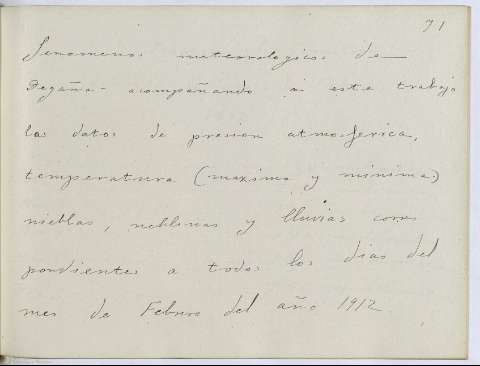 71
fenomenos meteorologicos de
Begaña - acompañando a este trabajo
los datos de presion atmosferica,
temperatura (maxima y minima)
nieblas, neblinas y lluvias corres
pondientes a todos los dias del
mes de Febrero del año 1912.